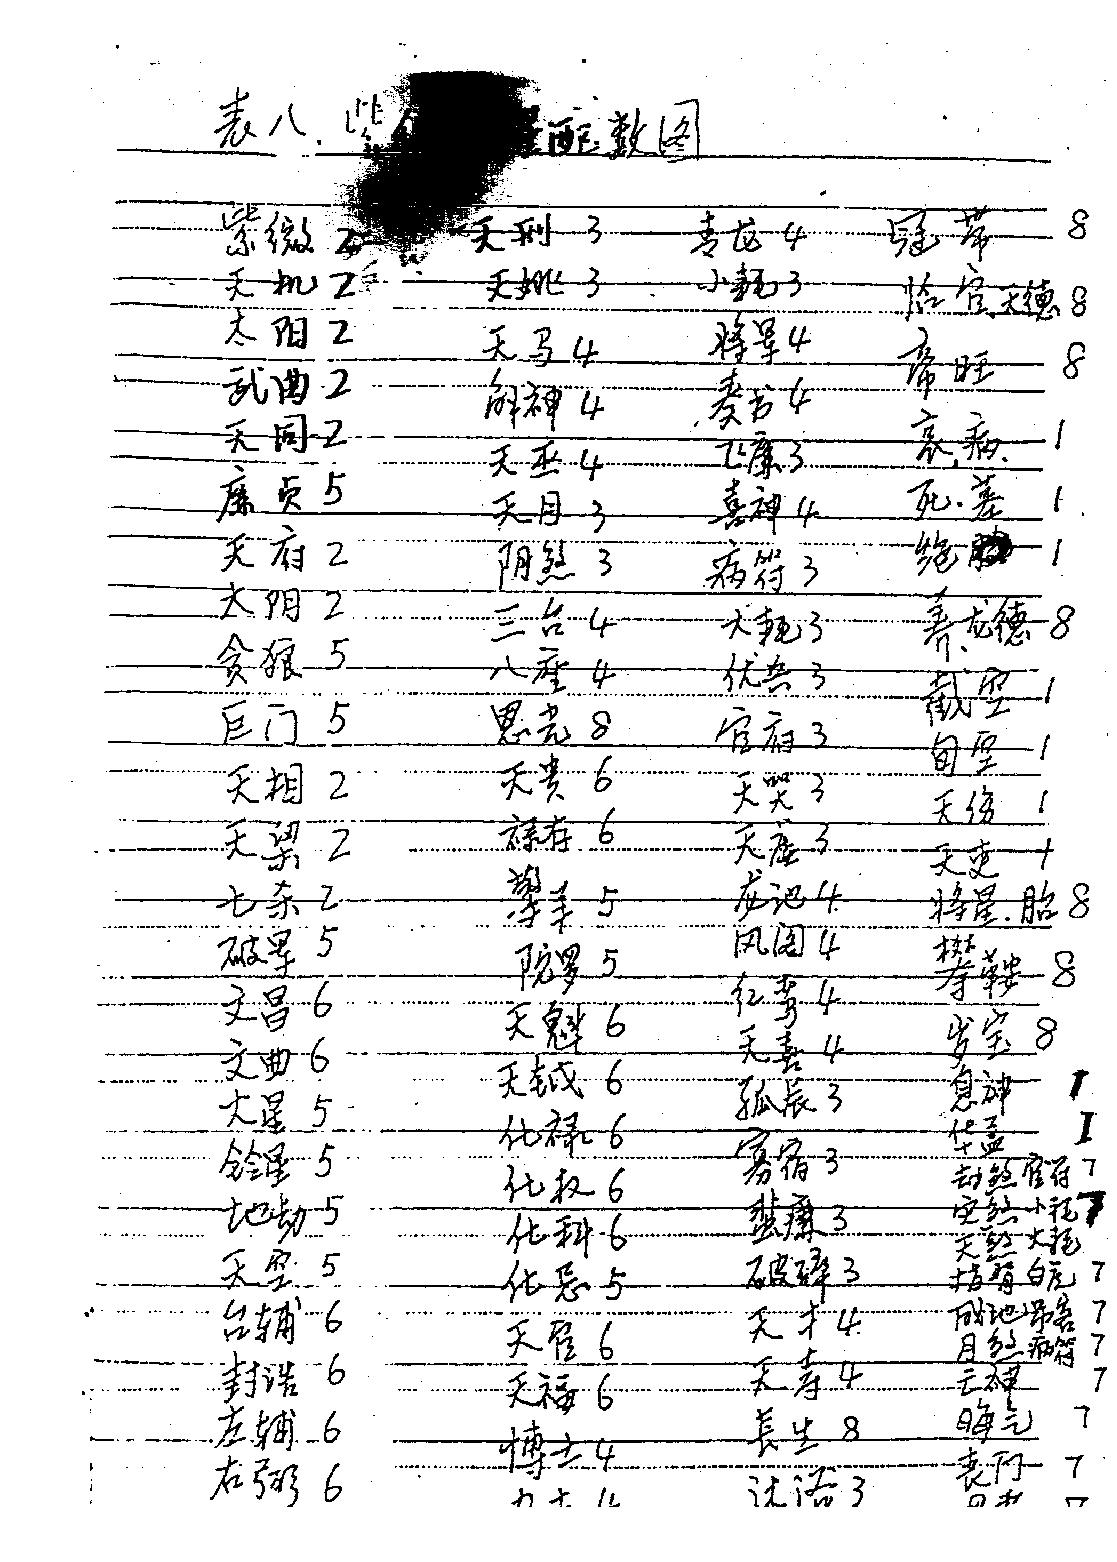 表八. 紫 配数图
紫微 2
天机 2
太阳 2
武曲 2
天同 2
廉贞 5
天府 2
太阴 2
贪狼 5
巨门 5
天相 2
天梁 2
七杀 2
破军 5
文昌 6
文曲 6
火星 5
铃星 5
地劫 5
天空 5
台辅 6
封诰 6
左辅 6
右弼 6
天刑 3
天姚 3
天马 4
解神 4
天巫 4
天月 3
阴煞 3
三台 4
八座 4
恩光 8
天贵 6
禄存 6
擎羊 5
陀罗 5
天魁 6
天钺 6
化禄 6
化权 6
化科 6
化忌 5
天官 6
天福 6
博士 4
青龙 4
小耗 3
将军 4
奏书 4
飞廉 3
喜神 4
病符 3
大耗 3
伏兵 3
官府 3
天哭 3
天虚 3
龙池 4
凤阁 4
红鸾 4
天喜 4
孤辰 3
寡宿 3
蜚廉 3
破碎 3
天才 4
天寿 4
長生 8
沐浴 3
冠带 8
临官.天德 8
帝旺 8
衰.病. 1
死.墓 1
绝 1
养.龙德 8
截空 1
旬空 1
天伤 1
天使 1
将星.胎 8
攀鞍 8
岁 8
息神 1
华盖 1
劫煞 官符 7
灾煞 小耗 7
天煞 大耗
指背 白虎 7
咸池 吊客 7
月煞 病符 7
亡神 7
晦气 7
丧门 7